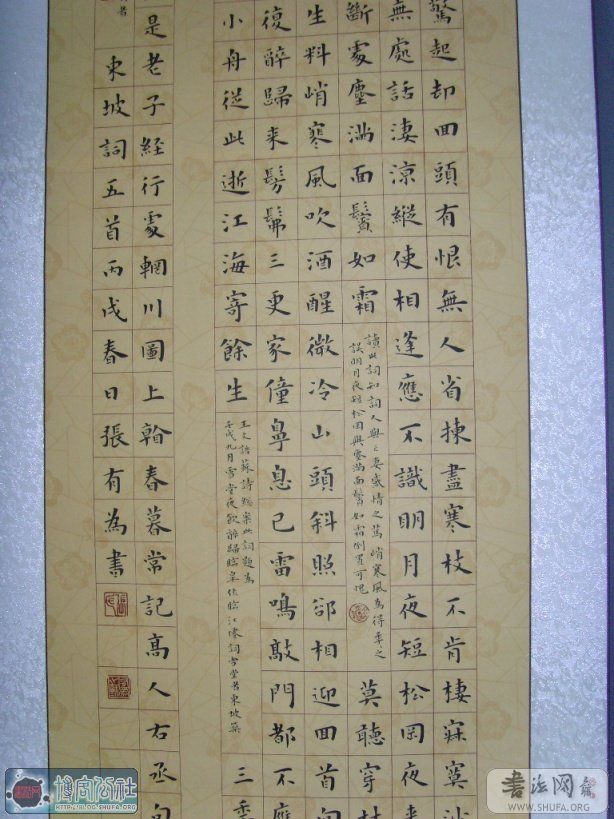 驚起却回頭有恨無人省揀盡寒枝不肯棲寂寞沙
無處話淒涼縱使相逢應不識明月夜短松岡夜来
斷處塵滿面鬢如霜
讀此詞知詞人與亡妻感情之篤峭寒風為得年之
誤明月夜短松岡與塵滿面鬢如霜倒置可愧
莫聽穿林
生料峭寒風吹酒醒微冷山頭斜照卻相迎回首向
復醉歸来髣髴三更家僮鼻息已雷鳴敲門都不應
小舟從此逝江海寄餘生
王文誥蘇詩總案此詞題為
壬戌九月雪堂夜飲醉歸臨皋作臨江僊詞雪堂為東坡築
三
是老子經行處輞川圖上看春暮常記高人右丞句
者
東坡詞五首丙戌春日張有為書
博宫公社
BLOG.SHUFA.ORG
书法网
WWW.SHUFA.COM